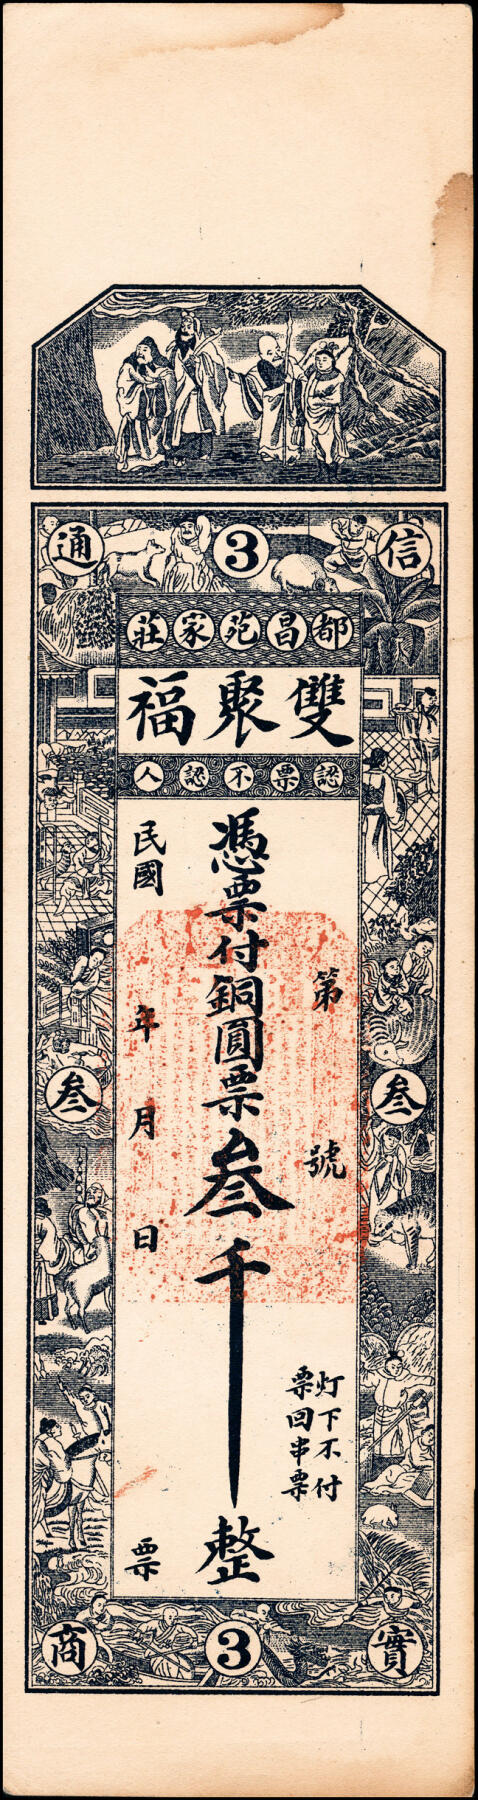 信 3 通
都昌苑家莊
雙聚福
認票不認人
第 號
憑票付銅圓票叁千整
民國 年 月 日 票
灯下不付
票回串票
叁 叁
實 3 商